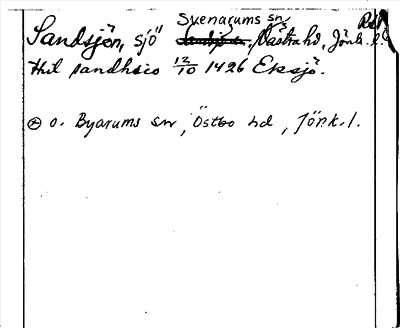 Svenarums sn
Sandsjön, sjö Västra hd, Jönk. l.
thil sandhsio 12/10 1426 Eksjö.
⊗ o. Byarums sn, Östbo hd, Jönk. l.